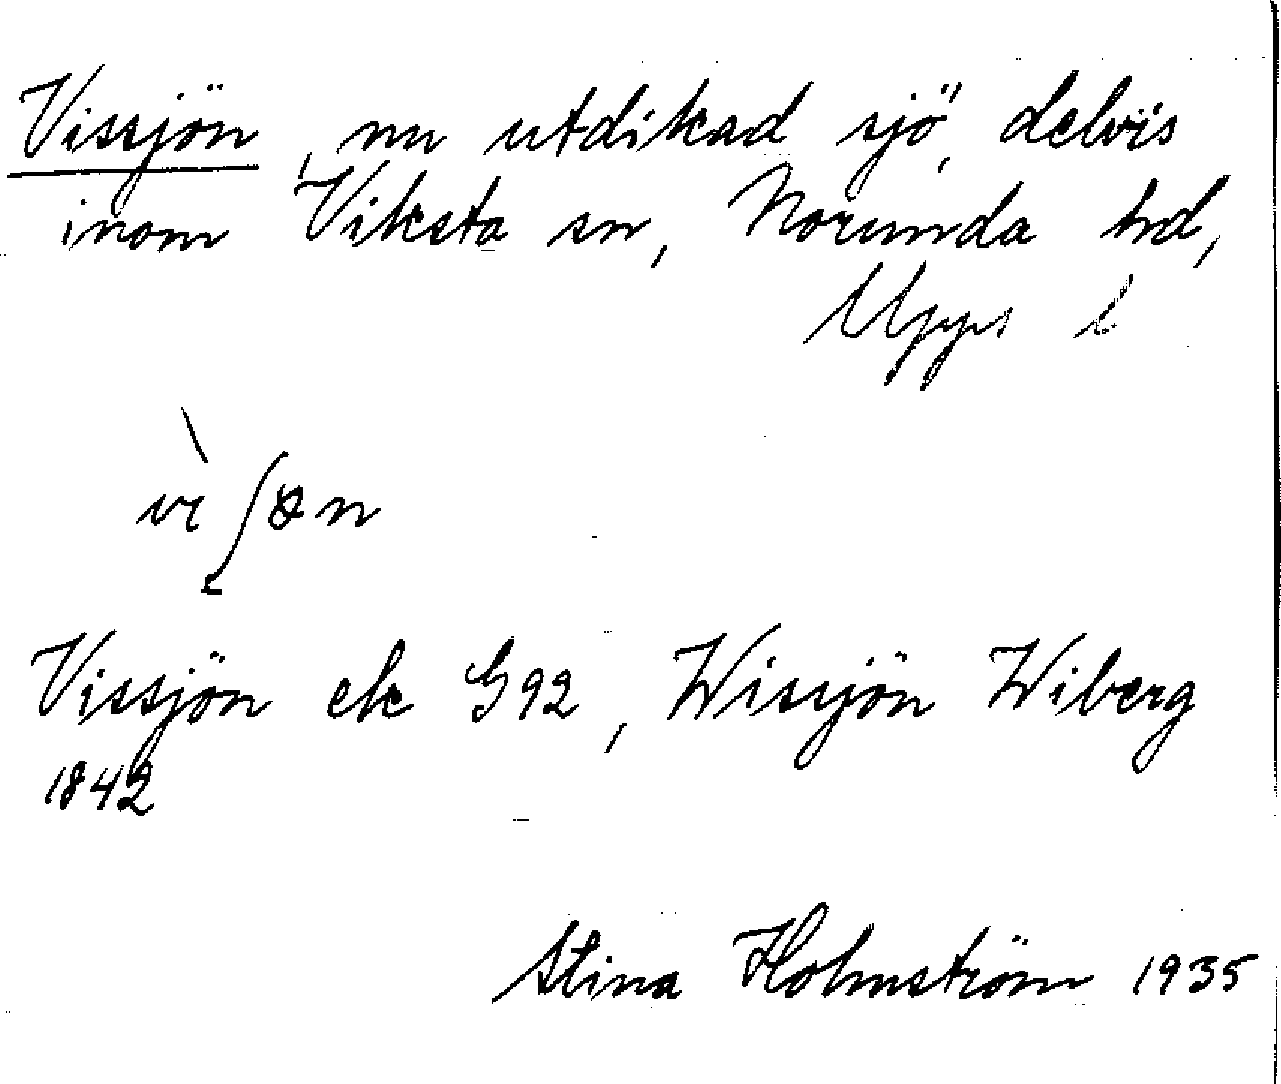 Vissjön, nu utdikad sjö, delvis
inom Viksta sn, Norunda hd,
Upps l
vi\ʃœn
Vissjön ek G92, Wissjön Wiberg
1842
Stina Holmström 1935